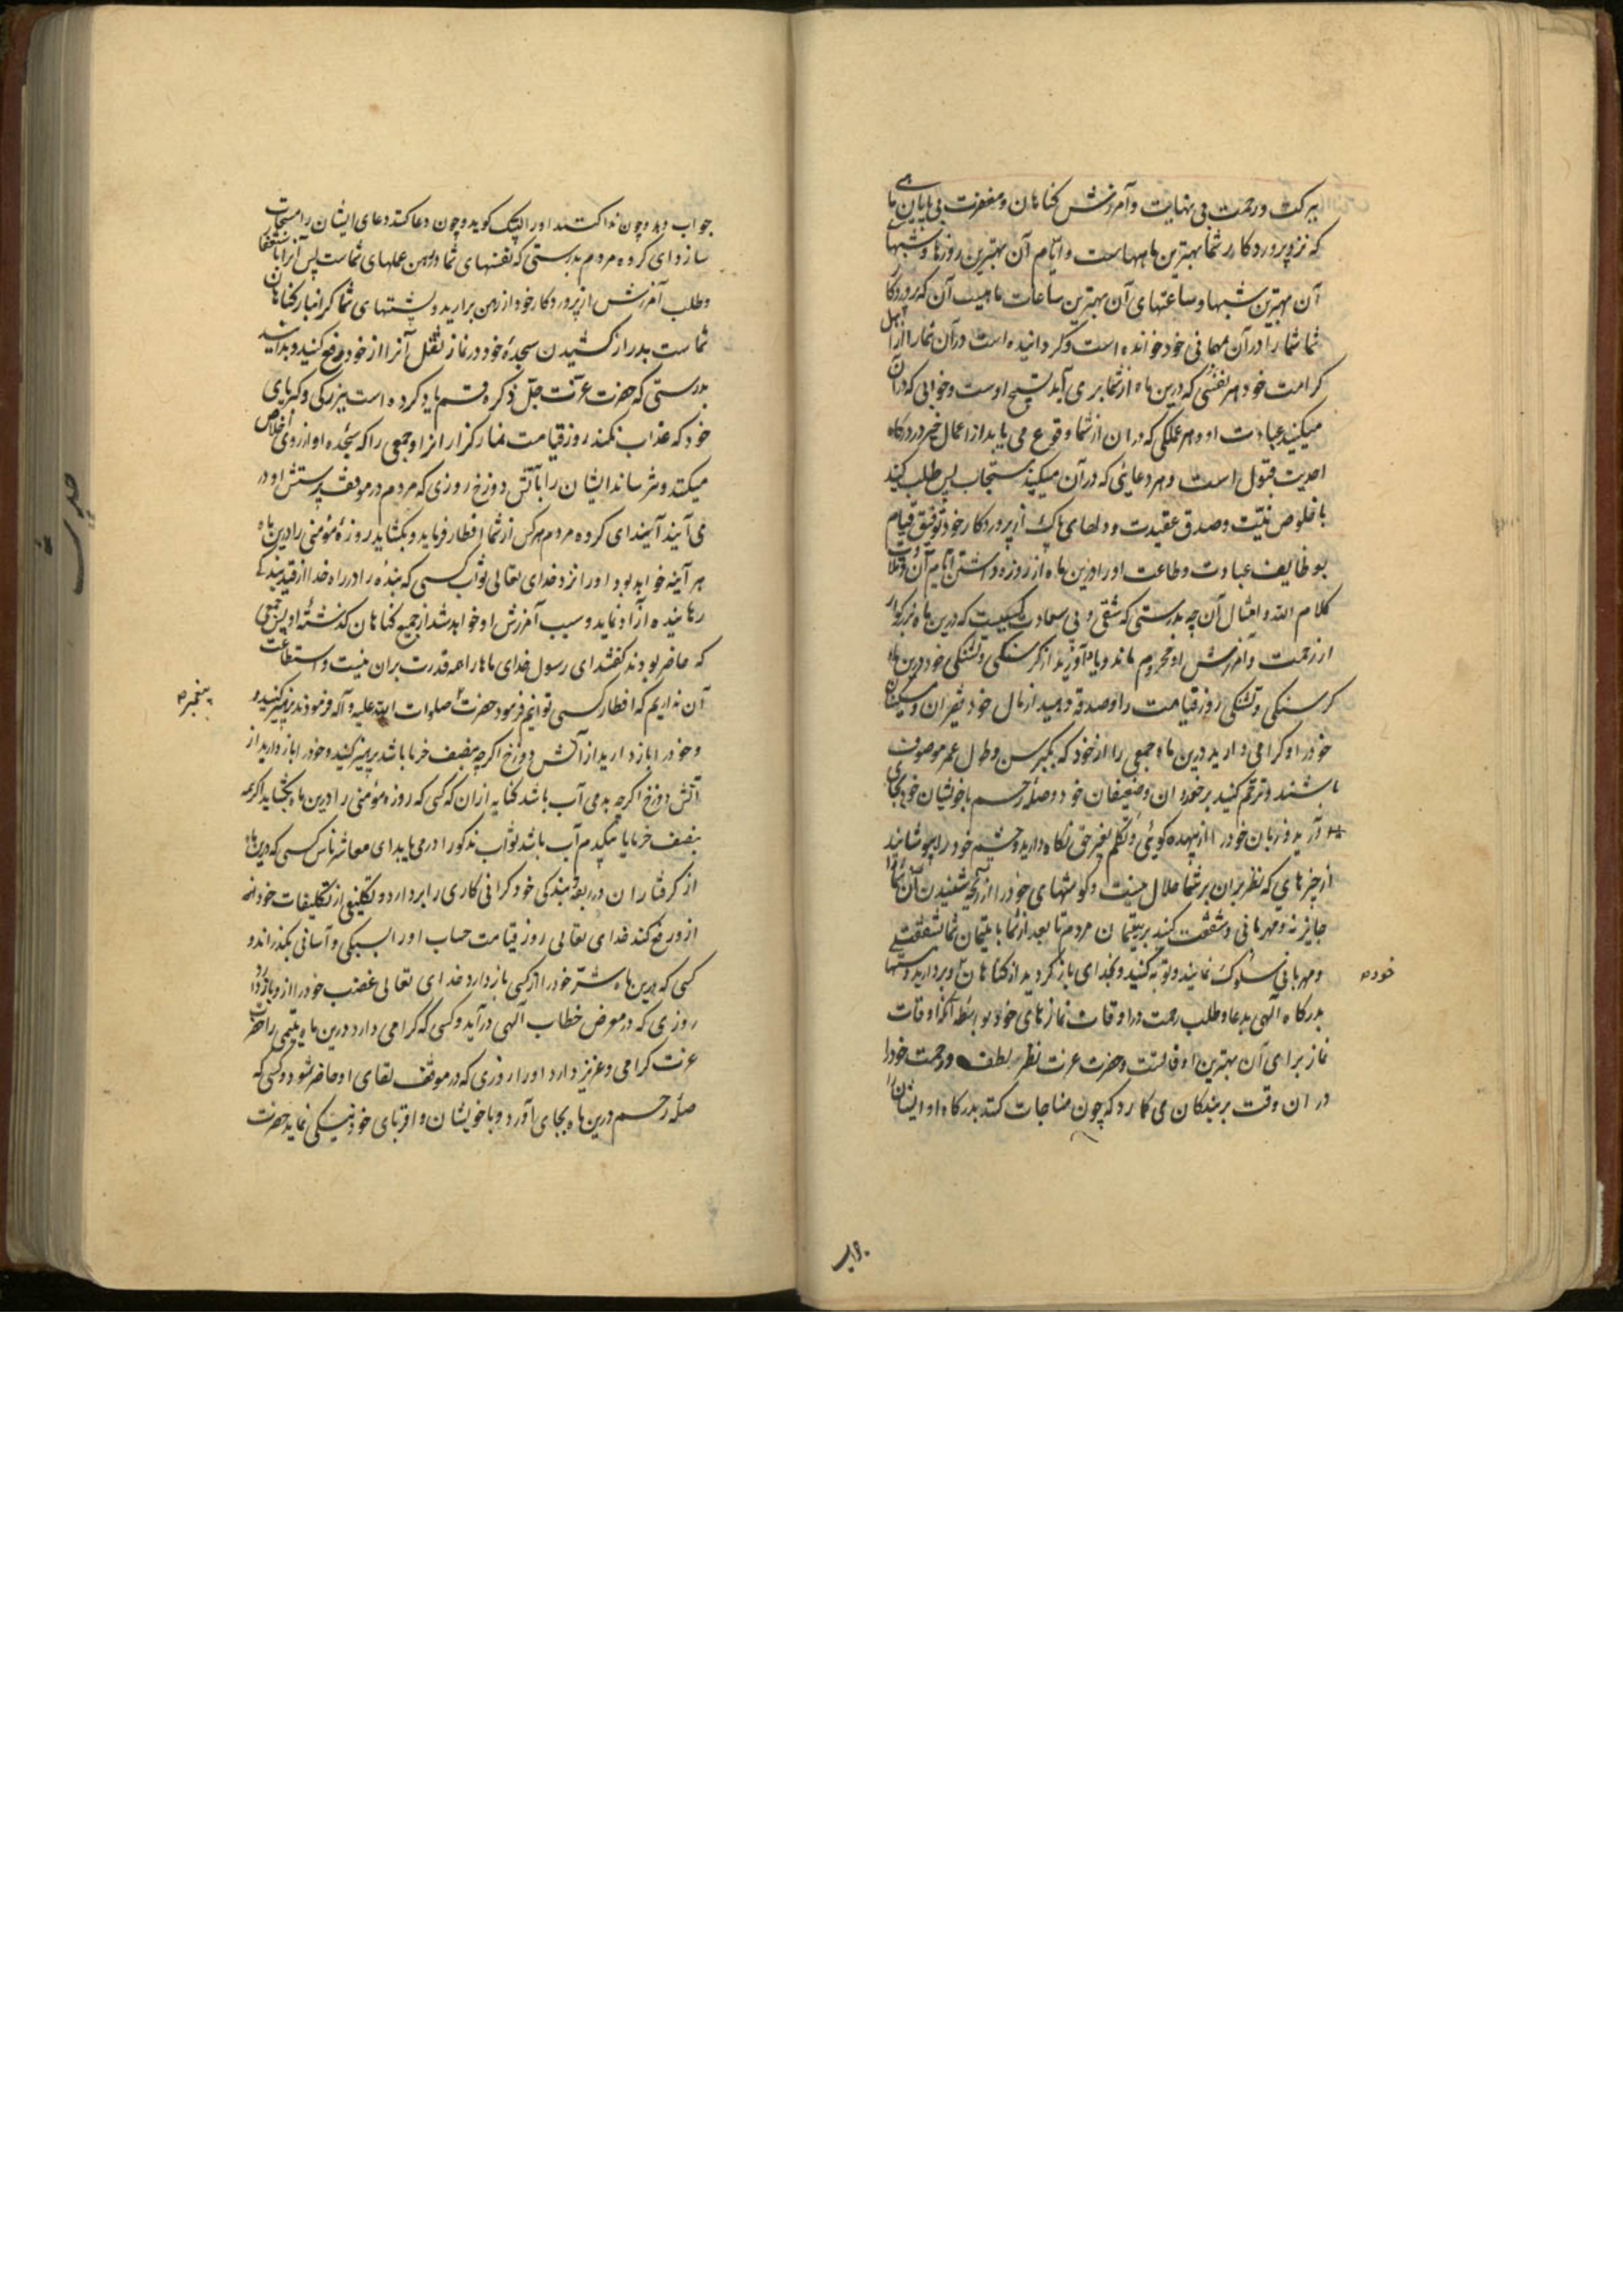 ببرکت و رحمت بی نهایت و آمرزش گناهان و مغفرت بی پایان ماهی
که نزد پروردکار شما بهترین ماههاست و ایام آن بهترین روزها و شبهای
آن بهترین شبها و ساعتهای آن بهترین ساعات ماهیست آن که پروردکار
شما شما را در آن مهمانی خود خوانده است و کردانیده است در آن شما را از اهل
کرامت خود هر نفسی که درین ماه از شما بر می آید تسبیح اوست و خوابی که در آن
میکنید عبادت او و هر عملکی که در ان از شما وقوع می یابد از اعمال خیر در درکاه
احدیت قبول است و هر دعایی که در آن میکنید مستجاب پس طلب کنید
با خلوص نیت و صدق عقیدت و دلهای پاک از پروردکار خود توفیق قیام
بوظایف عبادت و طاعت او را درین ماه از روزه داشتن ایام آن و تلاوت
کلام الله و امثال آن چه بدرستی که شقی و بی سعادت کسیست که درین ماه بزرکوار
از رحمت و آمرزش او محروم ماند و یاد آورید از کرسنکی و تشنکی خود درین ماه
کرسنکی و تشنکی روز قیامت را و صدقه دهید از مال خود فقیران و مسکینان
خود را و کرامی دارید درین ماه جمعی را از خود که بکبر سن و طول عمر موصوف
باشند و ترحم کنید بر خوردان و ضعیفان خود و صله رحم با خویشان خود بجای
آرید و زبان خود را از بیهده کویی و تکلم بغیر حق نکاه دارید و چشم خود را بپوشانید
از چیزهایی که نظر بران بر شما حلال نیست و کوشهای خود را از آنچه شنیدن آن شما را
جایز نه و مهربانی و شفقت کنید بر یتیمان مردم تا بعد از شما با یتیمان شما شفقت
و مهربانی سلوک نمایند و توبه کنید و بخدای باز کردید از کناهان و بردارید دستها
خود
بدرکاه الهی بدعا و طلب رحمت در اوقات نمازهای خود بواسطه آنکه اوقات
نماز برای آن بهترین اوقاتست و حضرت عزت نظر لطف و رحمت خود را
در ان وقت بر بندکان می کمارد که چون مناجات کنند بدرکاه او ایشان را
جواب
جواب دهد و چون ندا کنند او را لبیک کوید و چون دعا کنند دعای ایشان را مستجاب
سازد ای کروه مردم بدرستی که نفسهای شما در رهن عملهای شماست پس آنرا باستغفار
و طلب آمرزش از پروردکار خود از رهن برارید و پشتهای شما کرانبار کناهان
شماست بدراز کشیدن سجده خود در نماز ثقل آنرا از خود رفع کنید و بدانید
بدرستی که حضرت عزت جل ذکره قسم یاد کرده است ببزرکی و کبریای
خود که عذاب نکند روز قیامت نماز کزاران را و جمعی را که سجده او از روی اخلاص
میکنند و نترساند ایشان را بآتش دوزخ روزی که مردم در موقف پرستش او در
می آیند آیند ای کروه مردم هر کس از شما افطار فرماید و بکشاید روزه مؤمنی را درین ماه
هر آینه خواهد بود او را نزد خدای تعالی ثواب کسی که بنده را در راه خدا از قید بندکی
رهانیده آزاد نماید و سبب آمرزش او خواهد شد از جمیع کناهان کذشته او پس جمعی
که حاضر بودند کفتند ای رسول خدای ما ها را همه قدرت بران نیست و استطاعت
آن نداریم که افطار کسی توانیم فرمود حضرت صلوات الله علیه و آله فرمودند پرهیز کنید و
پیغمبر
و خود را باز دارید از آتش دوزخ اکر چه بنصف خرما باشد پرهیز کنید و خود را باز دارید از
آتش دوزخ اکر چه بدمی آب باشد کنایه از ان که کسی که روزه مؤمنی را درین ماه بکشاید اکر چه
بنصف خرما یا بیکدم آب باشد ثواب مذکور را در می یابد ای معاشر ناس کسی که درین ماه
از کرفتاران در ربقه بندکی خود کرانی کاری را بردارد و تکلیفی از تکلیفات خود را
ازو رفع کند خدای تعالی روز قیامت حساب او را بسبکی و آسانی بکذراند و
کسی که درین ماه شر خود را از کسی باز دارد خدای تعالی غضب خود را ازو باز دارد
روزی که در معرض خطاب الهی درآید و کسی که کرامی دارد درین ماه یتیمی را حضرت
عزت کرامی و عزیز دارد او را روزی که در موقف لقای او حاضر شود و کسی که
صله رحم درین ماه بجای آورد و با خویشان و اقربای خود نیکی نماید حضرت